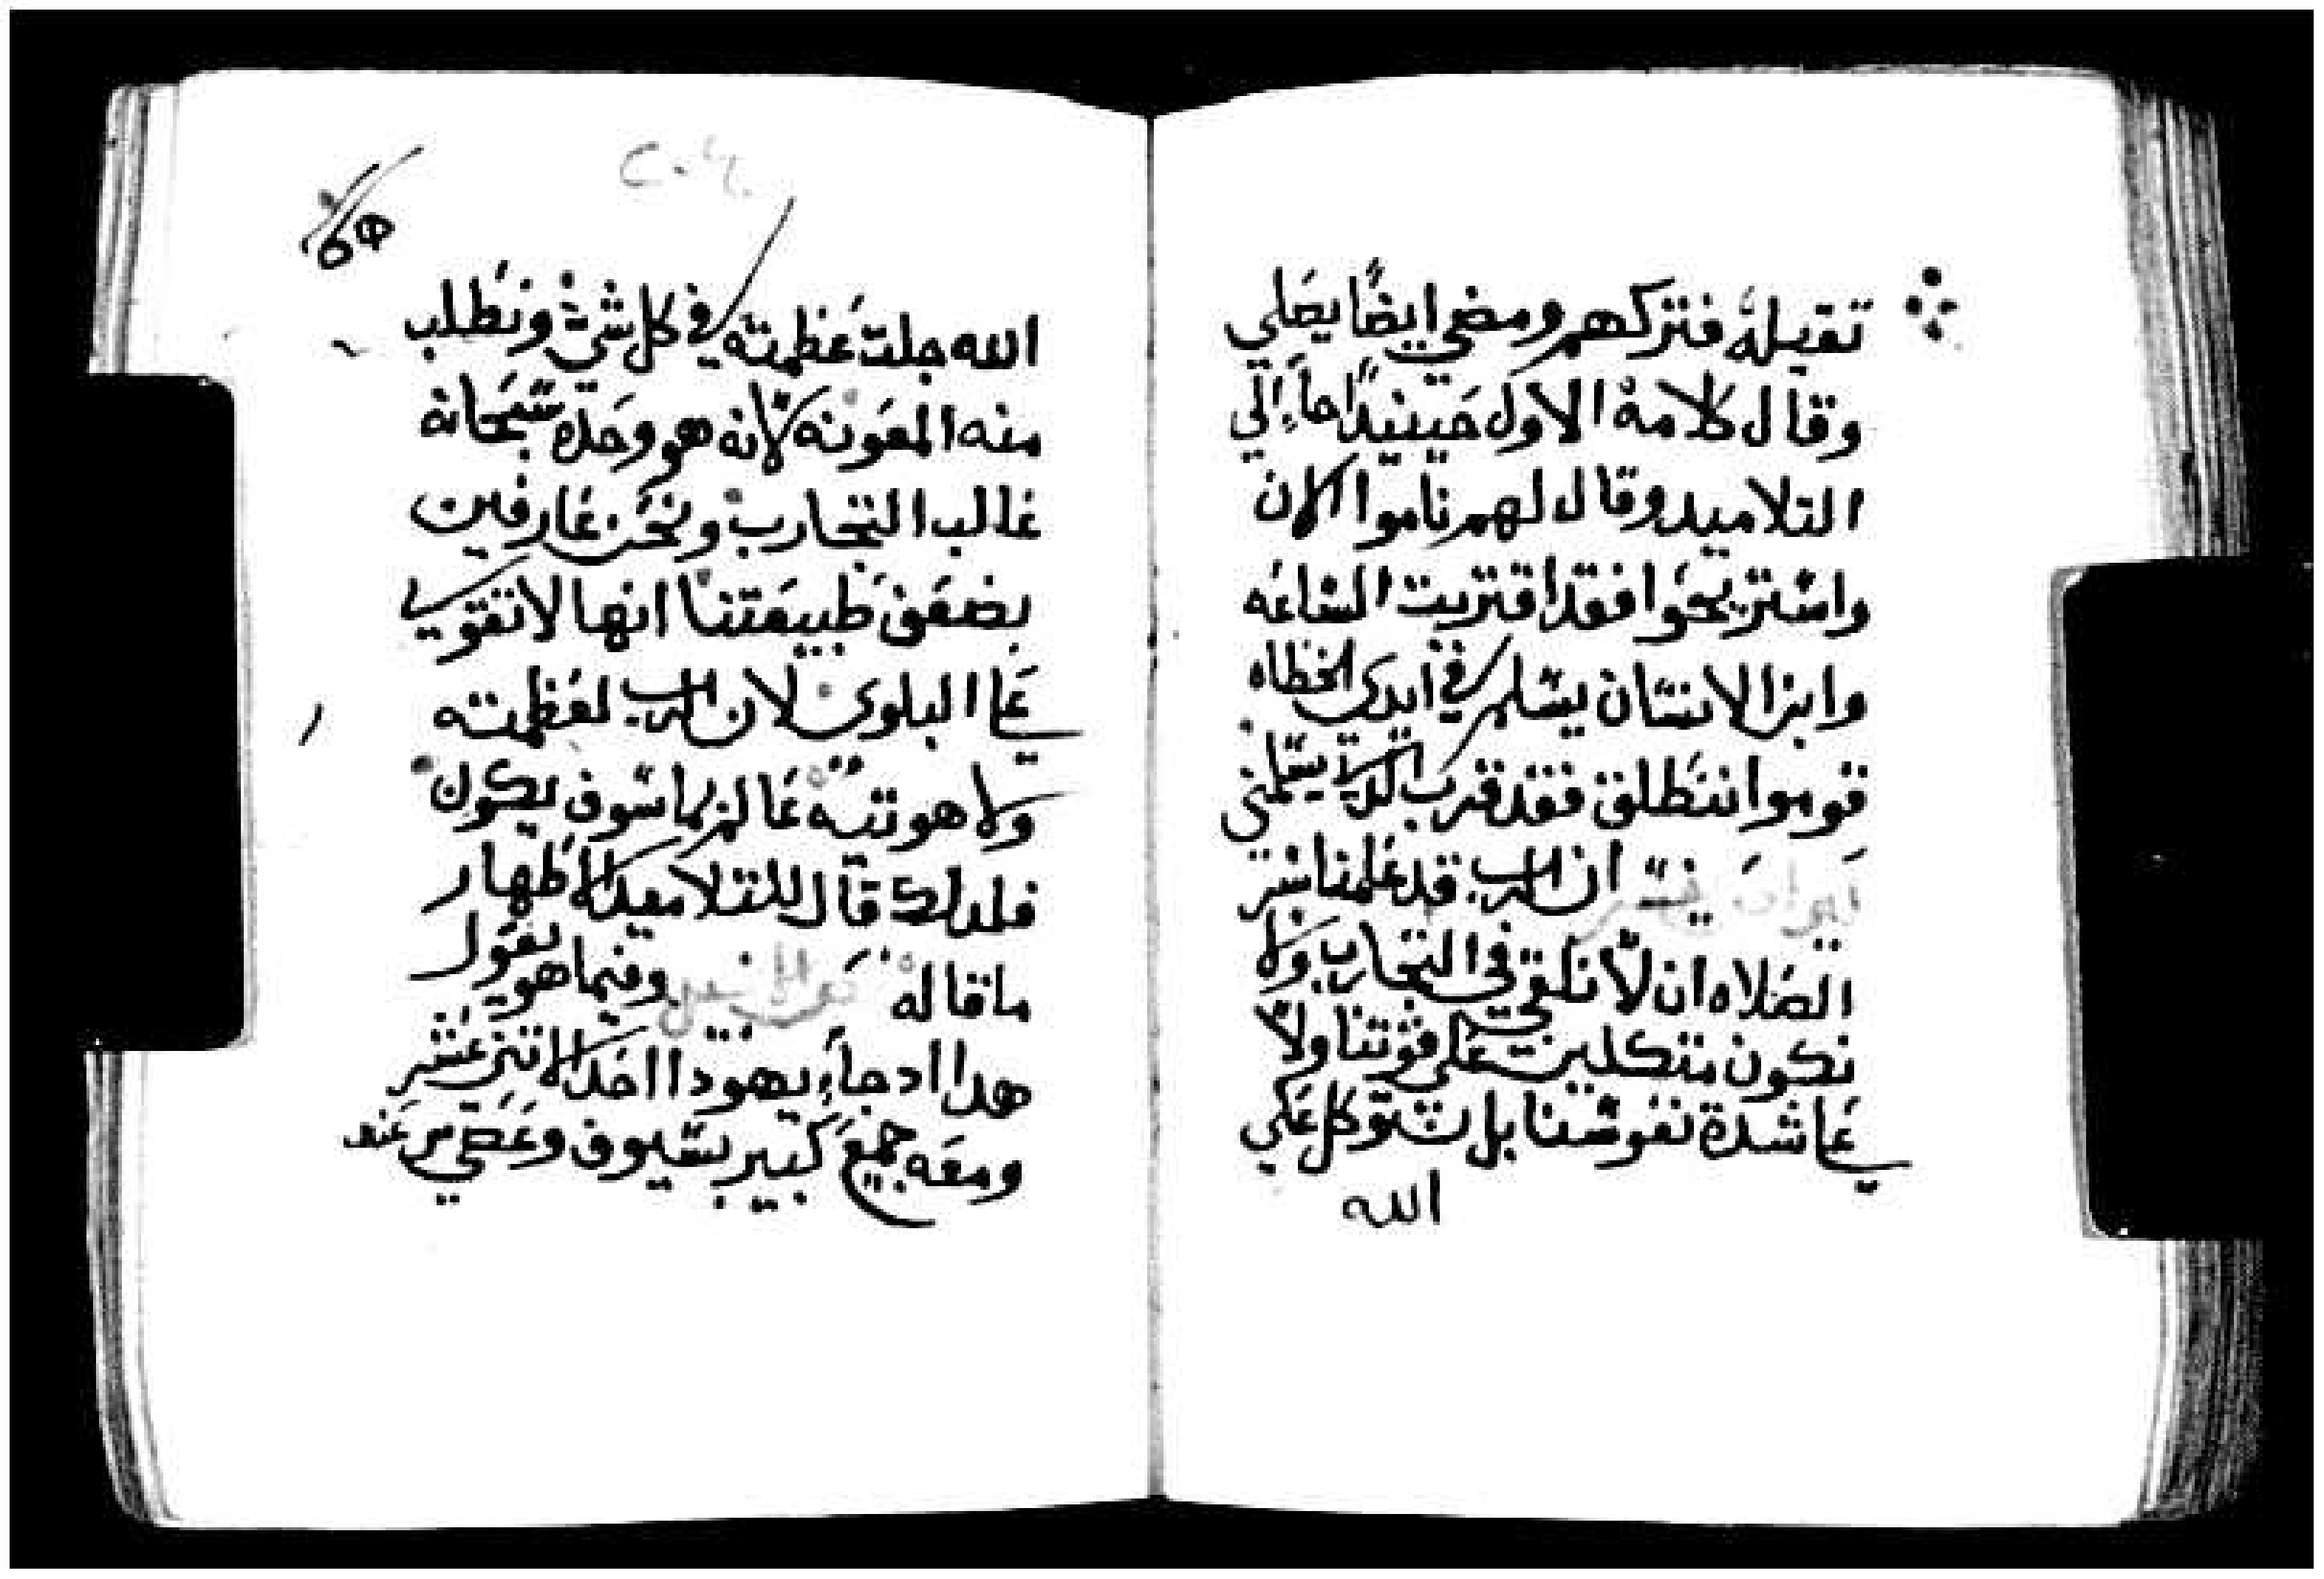 تقيله فتركهم ومضي ايضًا يصلي
وقال كلامه الاول حينيدًا جاء الي
التلاميد وقال لهم ناموا الان
واستريحوا فقد اقتربت الساعه
وابن الانسان يسلم في ايدي الخطاه
قوموا ننطلق فقد قرب الدي يسلمني
ان الرب قد علمنا سر
الصلاه ان لا نلقي في التجارب ولا
نكون متكلين علي قوتنا ولا
علي شدة نفوسنا بل نتوكل علي
الله
الله جلت عظمته في كل شي ونطلب
منه المعونه لانه هو وحده سبحانه
غالب التجارب ونحن عارفين
بضعف طبيعتنا انها لا تقوي
علي البلوي لان الرب لعظمته
ولاهوتيه عالم بما سوف يكون
فلدلك قال للتلاميد لاظهار
ما قاله وفيما هو يقول
هدا اد جاء يهودا احد الاتني عشر
ومعه جمع كبير بسيوف وعصي من عند